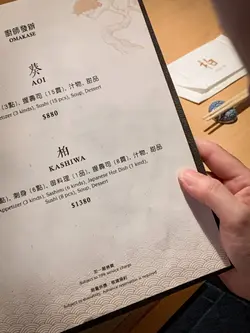 廚師發辦
OMAKASE
葵
AOI
(3點), 握壽司 (15貫), 汁物, 甜品
etizer (3 kinds), Sushi (15 pcs), Soup, Dessert
$880
柏
KASHIWA
點), 刺身 (6點), 御料理 (1品), 握壽司 (8貫), 汁物, 甜品
Appetizer (3 kinds), Sashimi (6 kinds), Japanese Hot Dish (1 kind),
Sushi (8 pcs), Soup, Dessert
$1380
加一服務費
Subject to 10% service charge
Subject to availability. Advanced reservation is required
柏